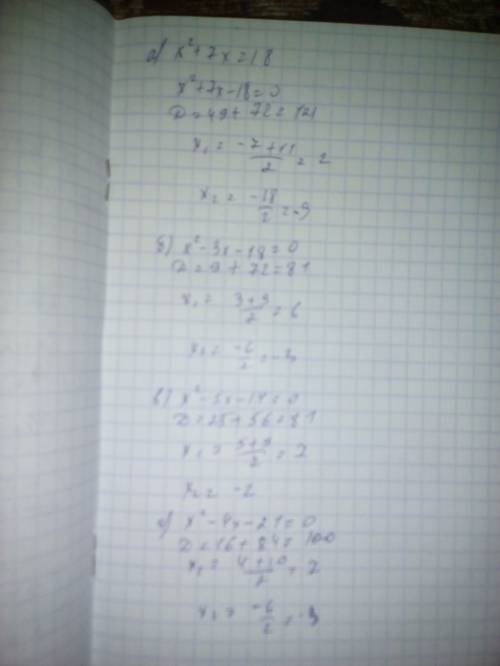 а) x² + 7x = 18
x² + 7x - 18 = 0
D = 49 + 72 = 121
x₁ = (-7 + 11)/2 = 2
x₂ = -18/2 = -9
б) x² - 3x - 18 = 0
D = 9 + 72 = 81
x₁ = (3 + 9)/2 = 6
x₂ = -6/2 = -3
в) x² - 5x - 14 = 0
D = 25 + 56 = 81
x₁ = (5 + 9)/2 = 7
x₂ = -2
x² - 4x - 21 = 0
D = 16 + 84 = 100
x₁ = (4 + 10)/2 = 7
x₂ = -6/2 = -3